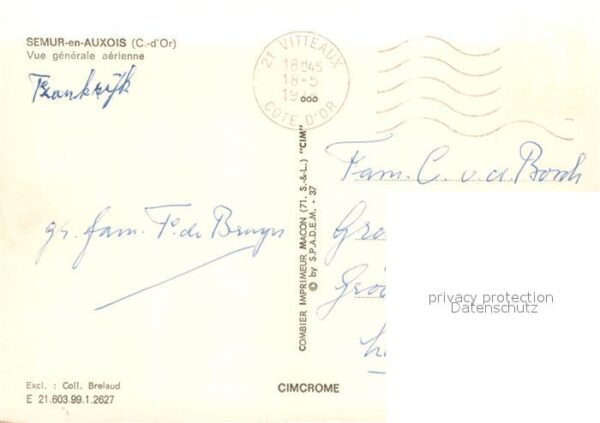 SEMUR-en-AUXOIS (C.-d'Or)
Vue générale aérienne
Frankrijk
21 VITTEAUX
18H45
18-5
COTE D'OR
Fam. C. v. d. Borch
gr. fam. P. de Bruyn
COMBIER IMPRIMEUR MACON (71. S.-&-L.) "CIM"
© by S.P.A.D.E.M. - 37
privacy protection
Datenschutz
Excl. : Coll. Brelaud
E 21.603.99.1.2627
CIMCROME